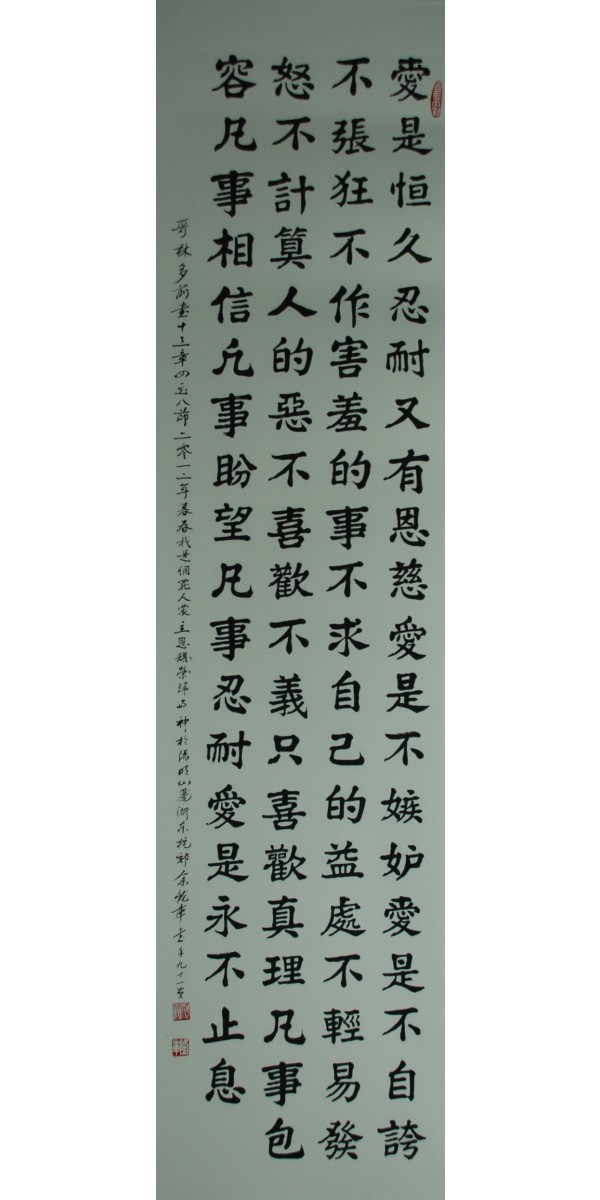 愛是恒久忍耐又有恩慈愛是不嫉妒愛是不自誇
不張狂不作害羞的事不求自己的益處不輕易發
怒不計算人的惡不喜歡不義只喜歡真理凡事包
容凡事相信凡事盼望凡事忍耐愛是永不止息
哥林多前書十三章四至八節二零一二年暮春我是個罪人蒙主恩耀榮歸与神於陽明山